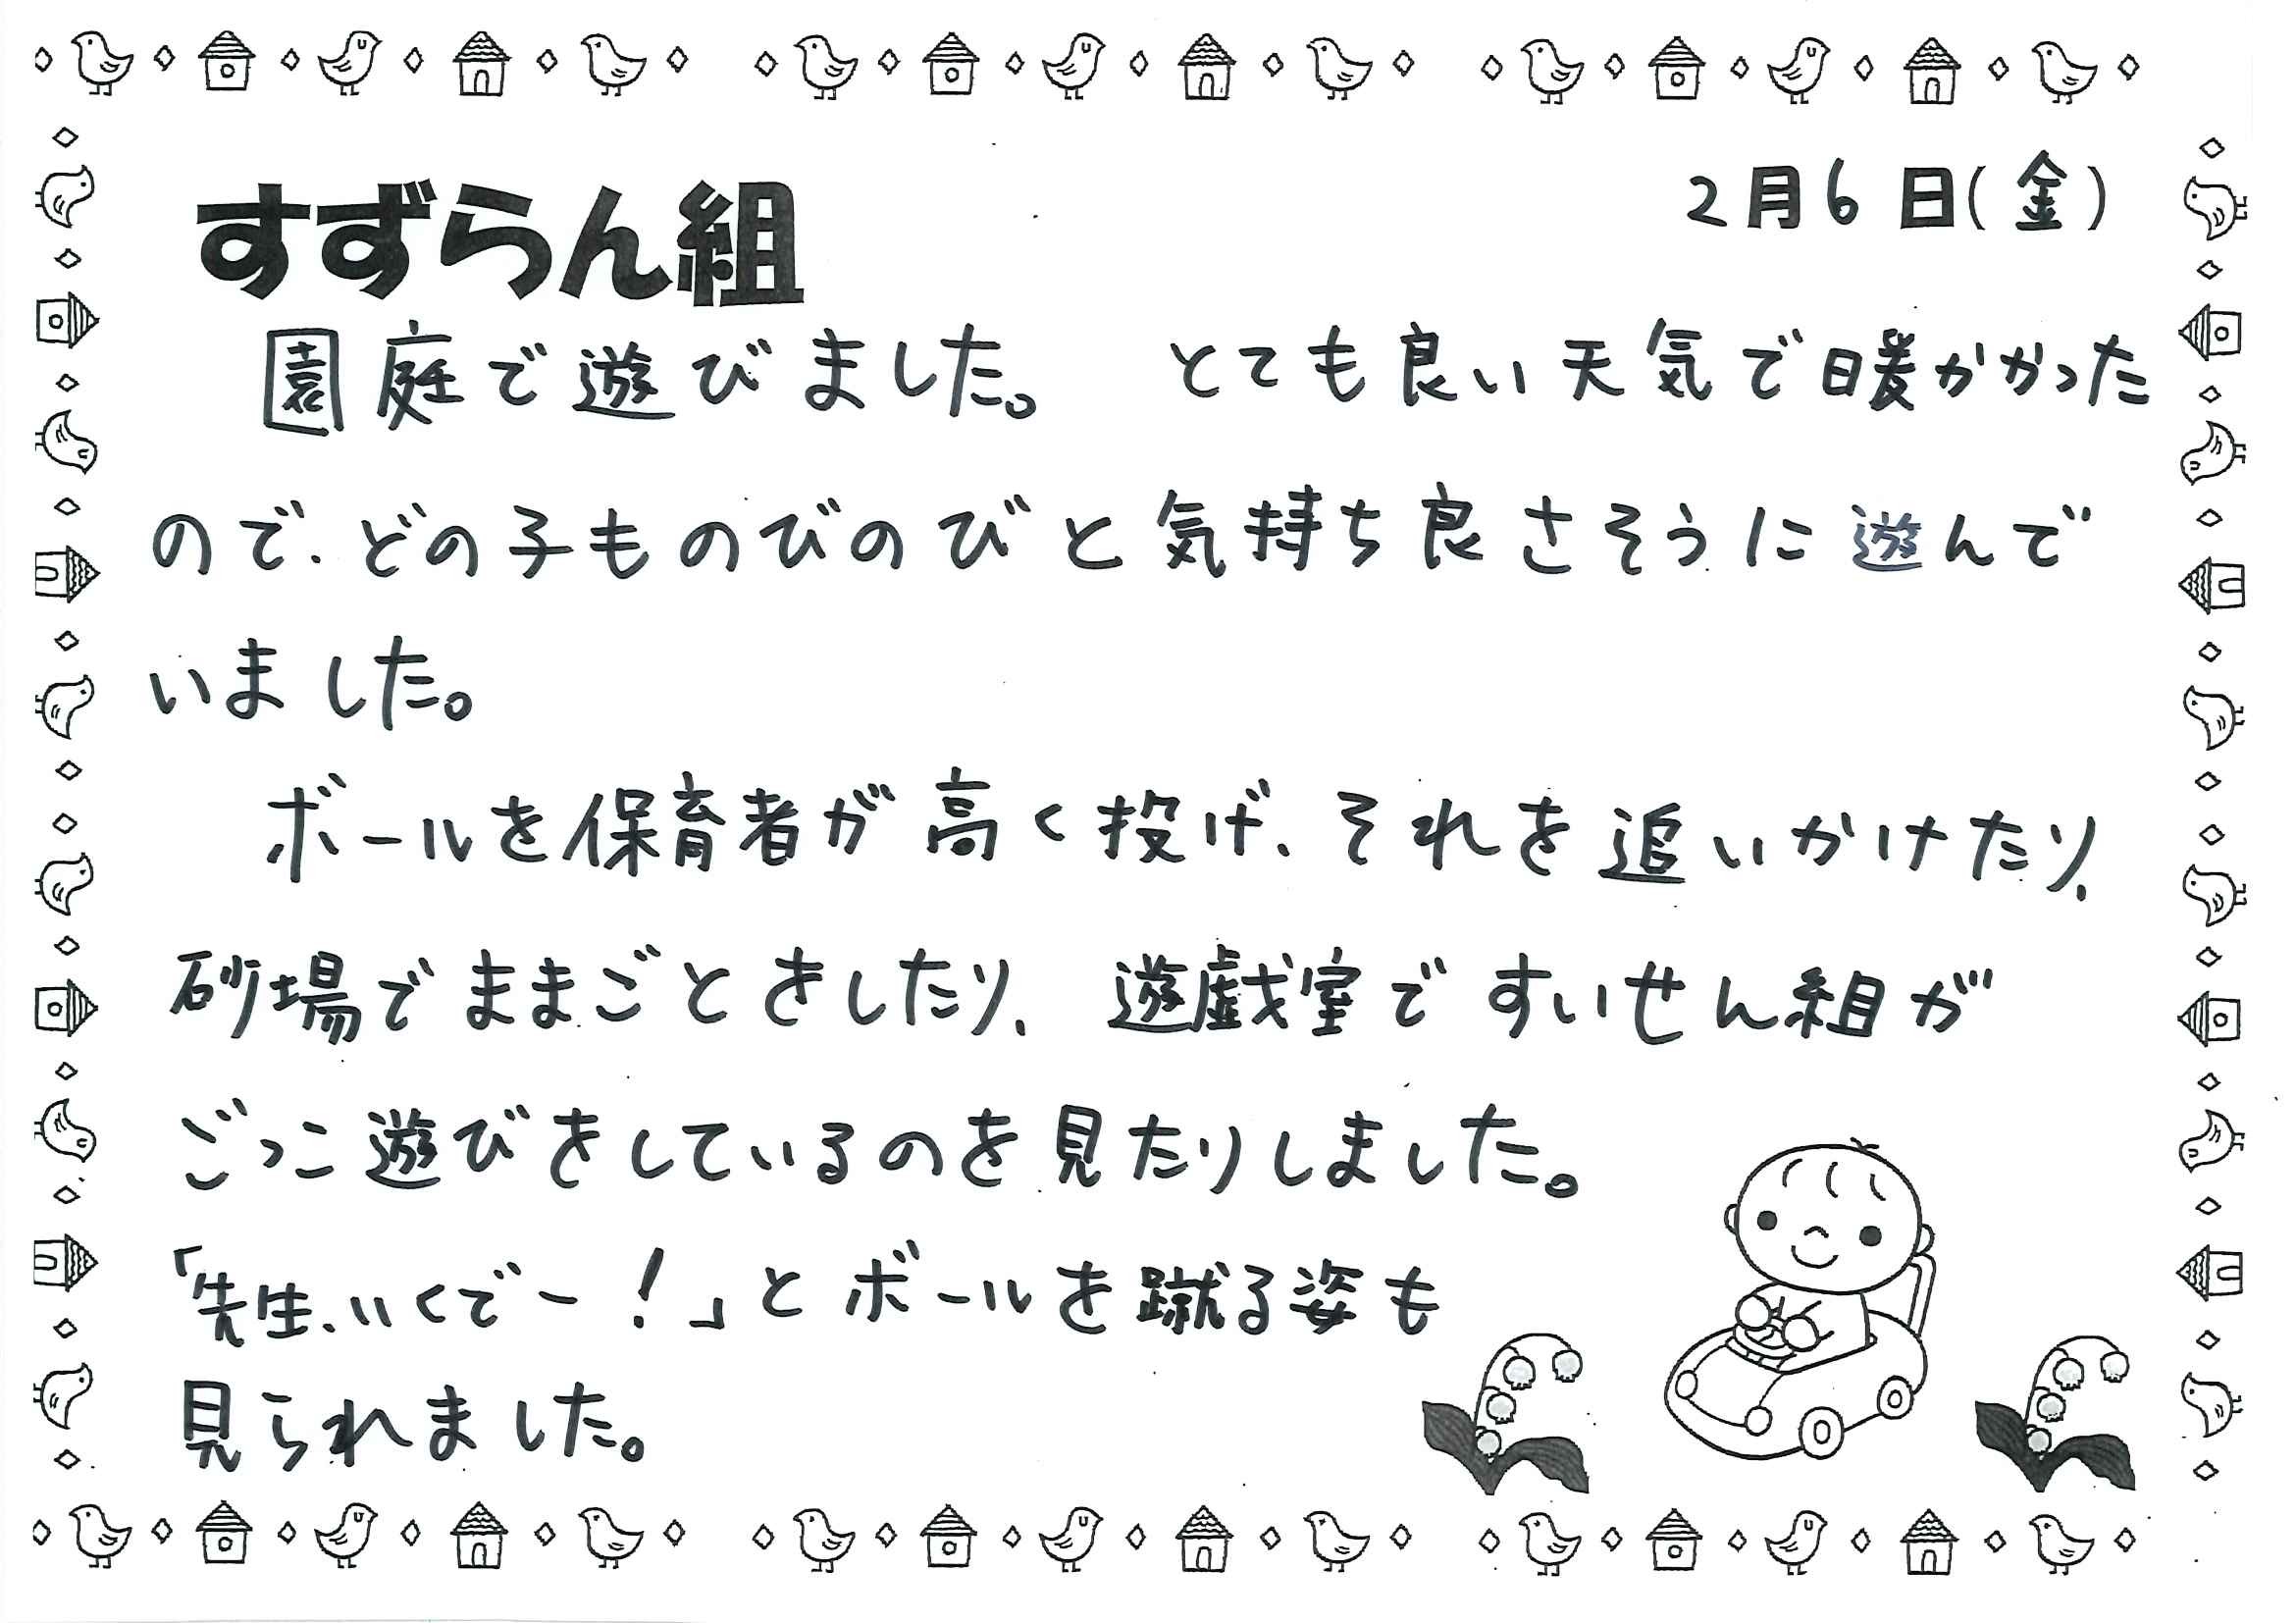 2月6日(金)
すずらん組
園庭で遊びました。 とても良い天気で暖かかった
ので、どの子ものびのびと気持ち良さそうに遊んで
いました。
ボールを保育者が高く投げ、それを追いかけたり、
砂場でままごとをしたり、遊戯室ですいせん組が
ごっこ遊びをしているのを見たりしました。
「先生、いくでー!」とボールを蹴る姿も
見られました。